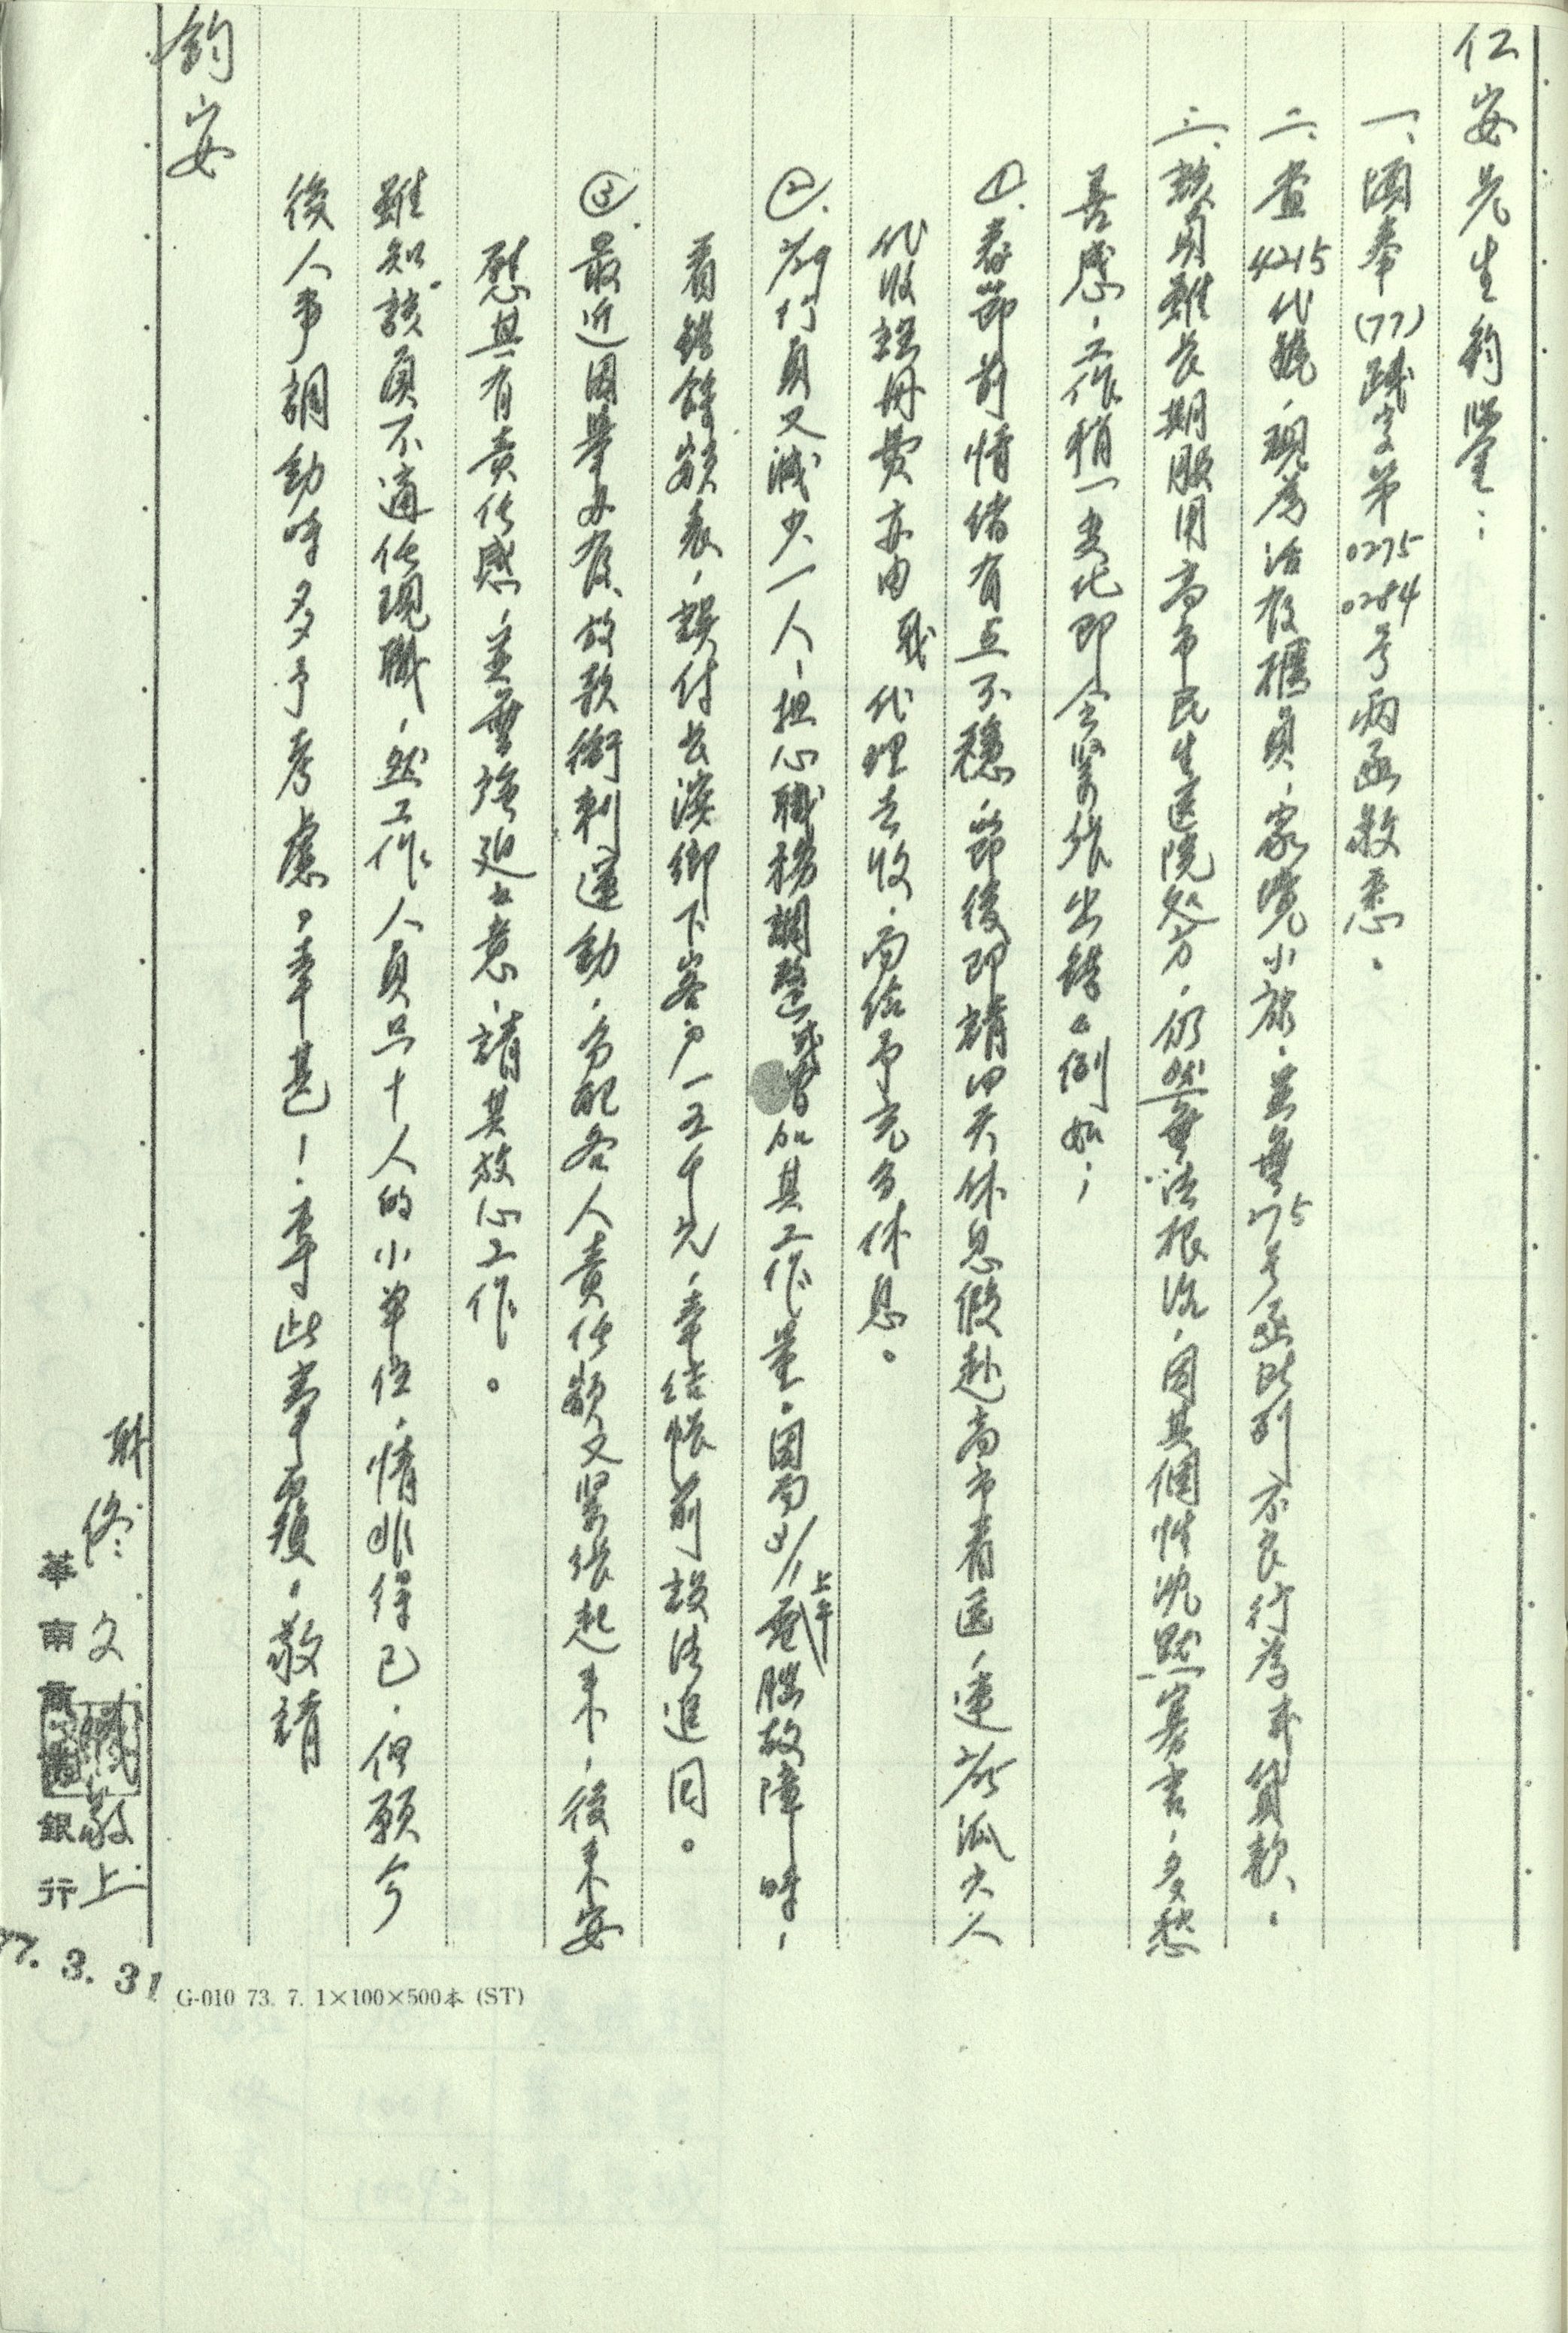 仁安先生鈞鑒：
一、頃奉(77)識字第0275 0284号兩函敬悉。
二、查4215代號，現為活存櫃員，家境小康，並無275号函所列不良行為或貸款。
三、該員雖長期服用高市民生医院処方，仍然無法根治，因其個性沈默寡言，多愁
善感，工作稍一变化即会緊張出錯。例如；
①.春節前情緒有点不穩，節後即請四天休息假赴高市看医，連 派大人
代收註冊費亦由 職 代理去收，而給予充分休息。
②. 行員又減少一人，担心職務調整或增加其工作量，因而3/1上午電腦故障時，
看錯餘額表，誤付長濱鄉下客户一五千元，幸結帳前設法追回。
③.最近因舉办存、放款衝刺運動，分配各人責任額又緊張起来，後来安
慰其有責任感，並無強迫之意，請其放心工作。
雖知該員不適任現職，然工作人員只十人的小單位，情非得已，但願今
後人事調動時多予考慮。幸甚！專此奉覆，敬請
鈞安
職 敬上
華南商業銀行
77. 3. 31
G-010 73. 7. 1×100×500本 (ST)